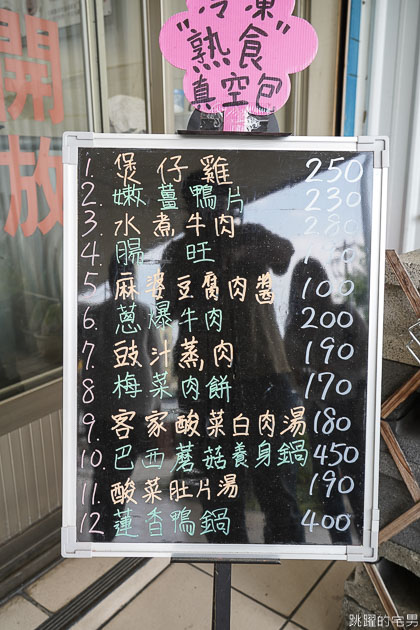 "冷凍"
熟食
真空包
開放
1. 煲仔雞 250
2. 嫩薑鴨片 230
3. 水煮牛肉 280
4. 腸旺
5. 麻婆豆腐肉醬 100
6. 蔥爆牛肉 200
7. 豉汁蒸肉 190
8 梅菜肉餅 170
9. 客家酸菜白肉湯 180
10. 巴西蘑菇養身鍋 450
11. 酸菜肚片湯 190
12 蓮香鴨鍋 400
跳躍的宅男